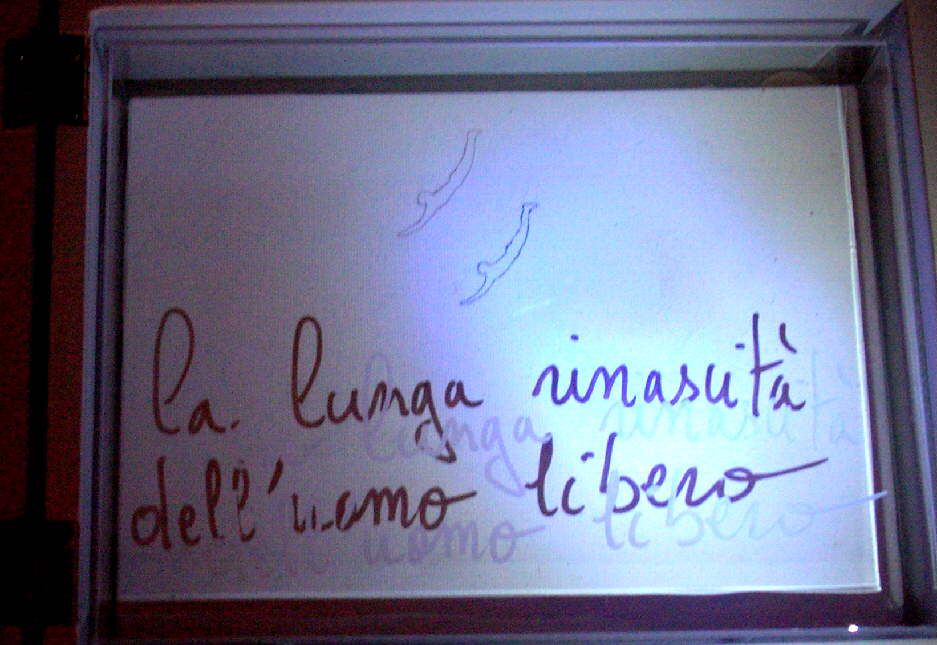 la lunga rinascita
dell'uomo libero